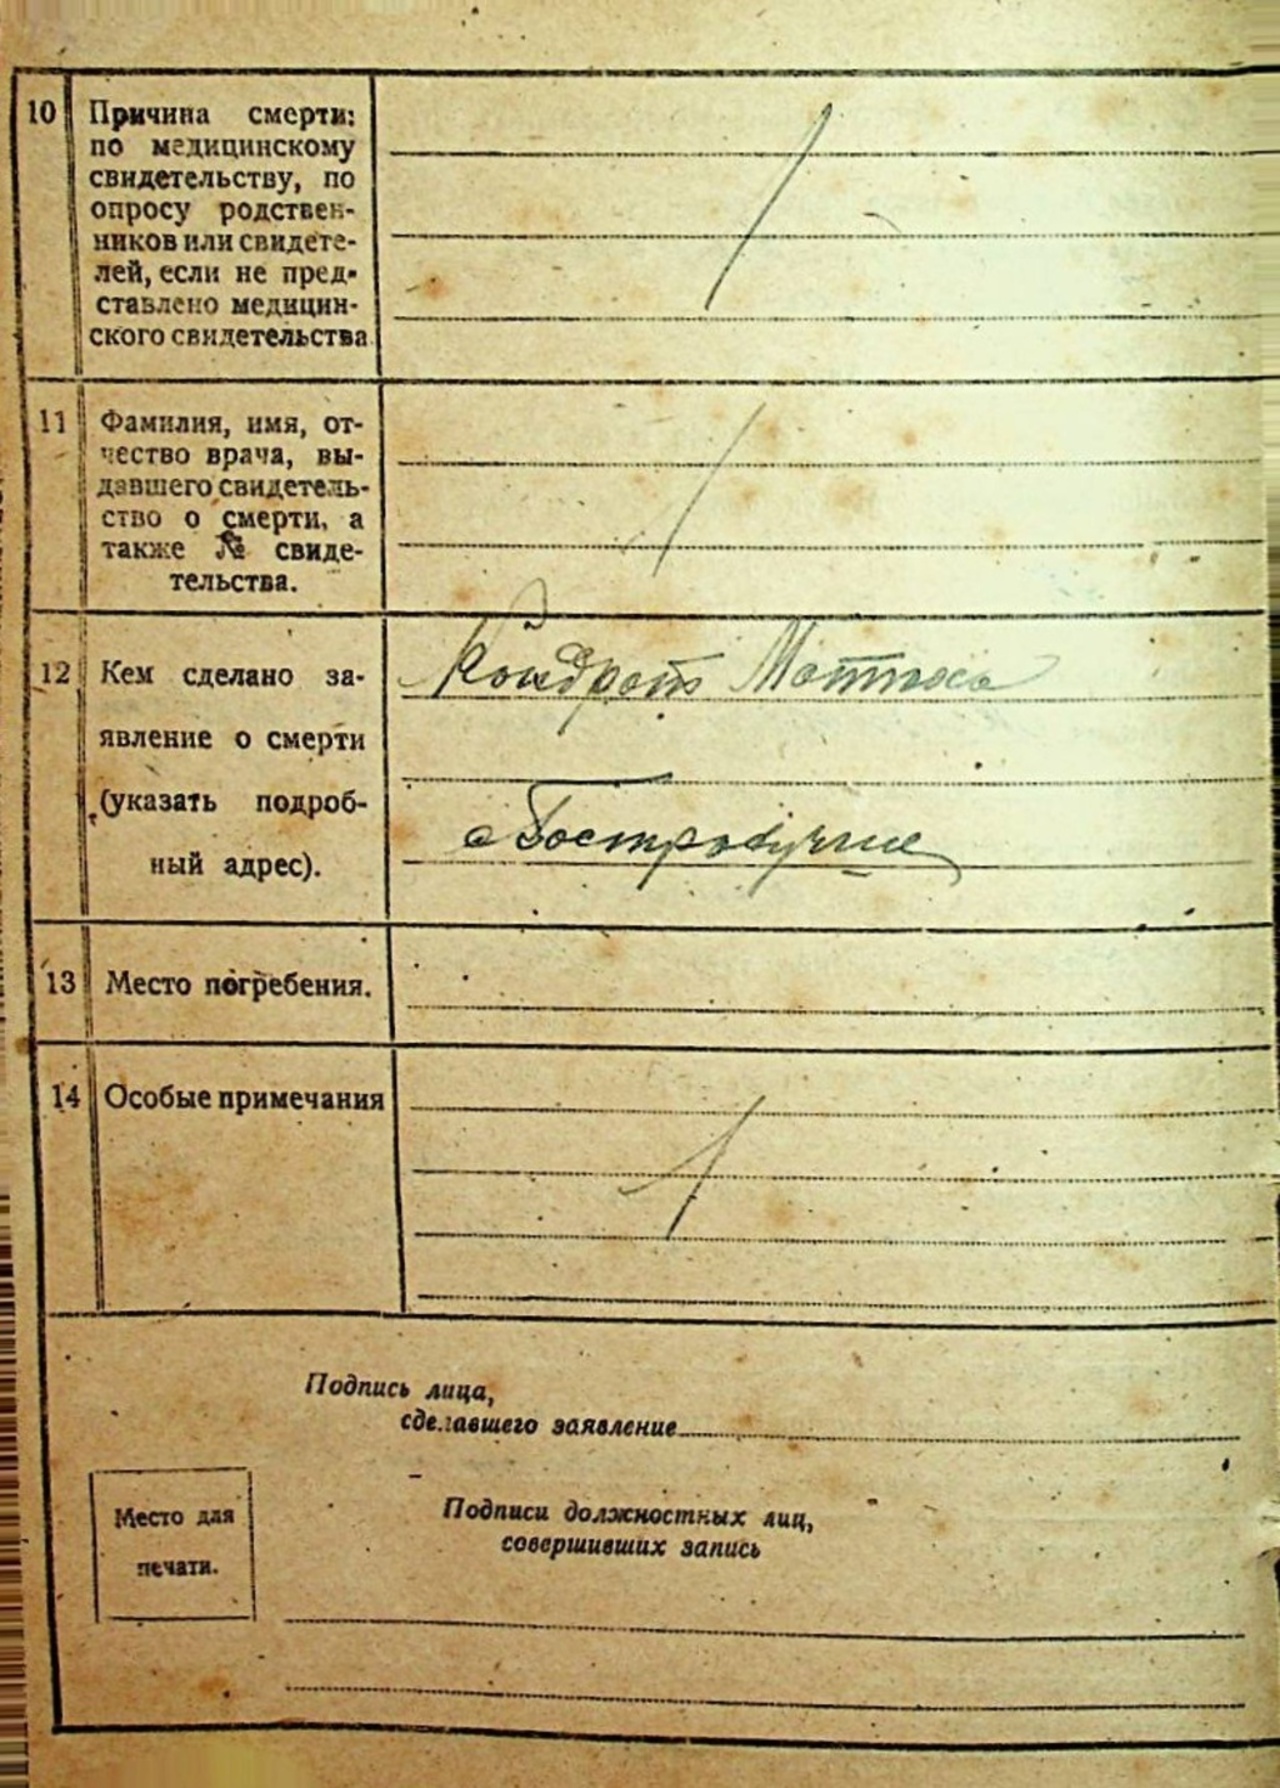 10 Причина смерти:
по медицинскому
свидетельству, по
опросу родствен-
ников или свидете-
лей, если не пред-
ставлено медицин-
ского свидетельства
11 Фамилия, имя, от-
чество врача, вы-
давшего свидетель-
ство о смерти, а
также № свиде-
тельства.
12 Кем сделано за-
явление о смерти
(указать подроб-
ный адрес).
Кондрат
13 Место погребения.
14 Особые примечания
Подпись лица,
сделавшего заявление
Место для
печати.
Подписи должностных лиц,
совершивших запись